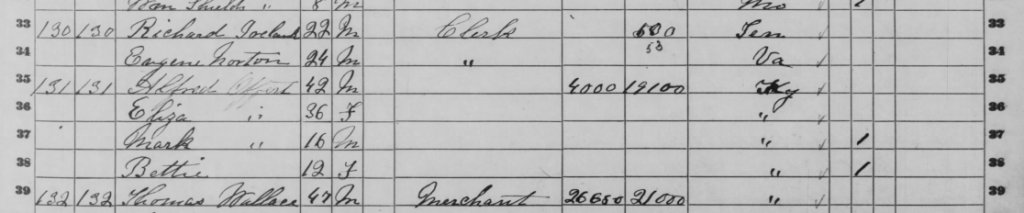 Wm Shields " 8 M Mo 1
33 130 130 Richard Ireland 22 M Clerk 500 Ten 33
34 Eugene Norton 24 M " 50 Va 34
35 131 131 Alfred Offort 42 M 4000 19100 Ky 35
36 Eliza " 36 F " 36
37 Mark " 16 M " 1 37
38 Bettie 12 F " 1 38
39 132 132 Thomas Wallace 47 M Merchant 26650 21000 " 39